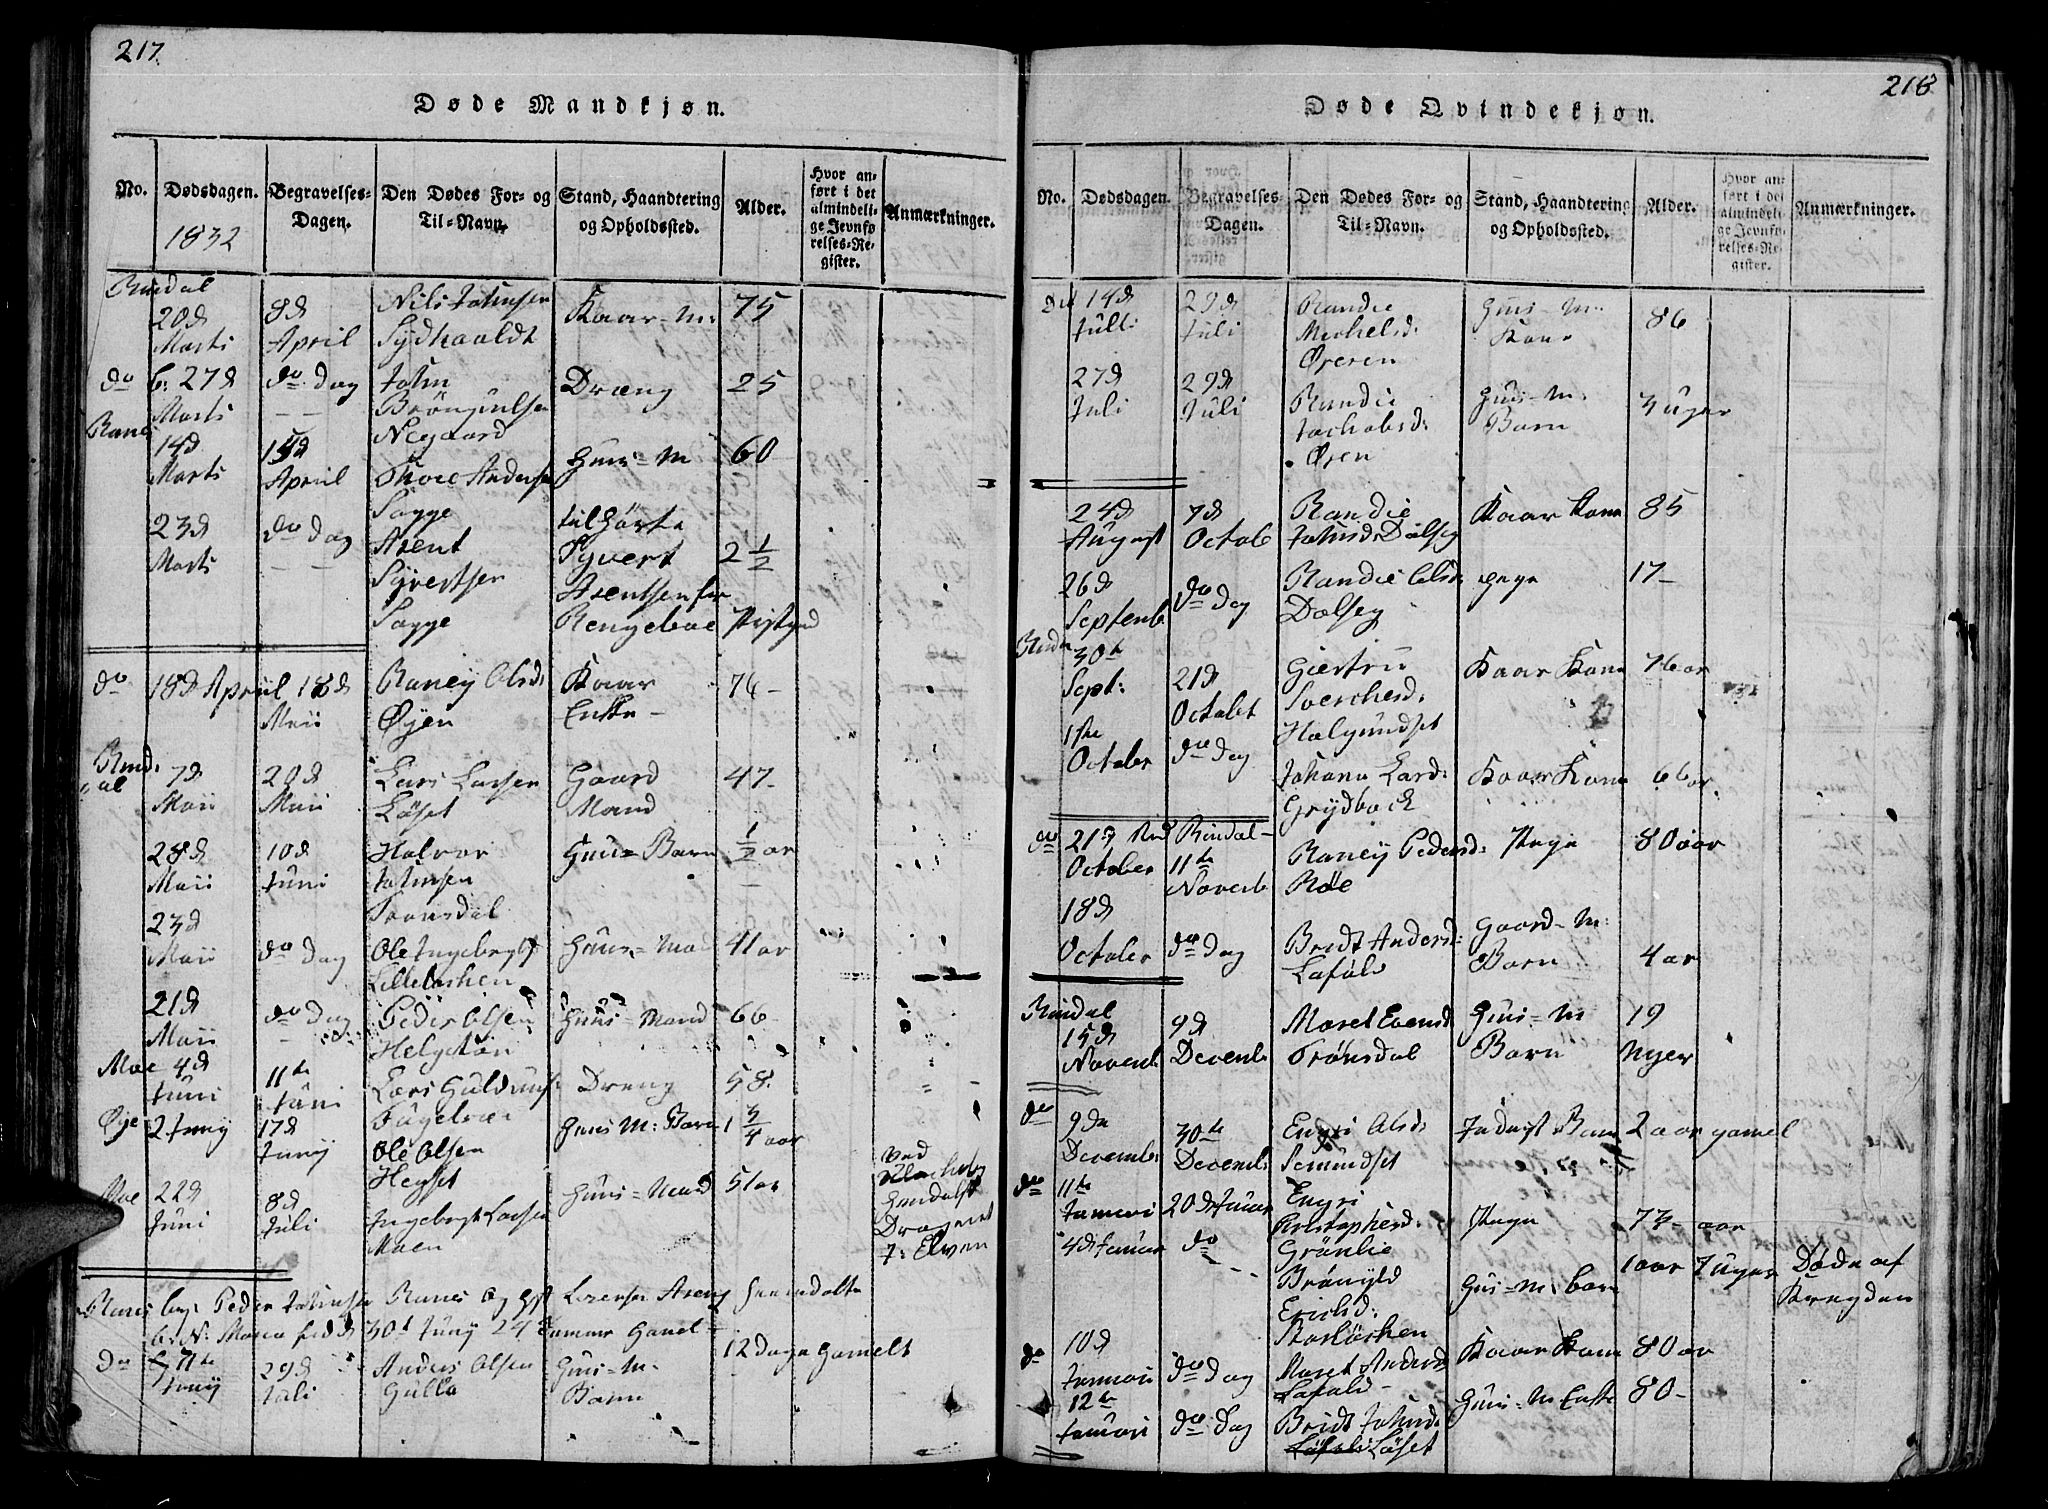 217
Døde Mandkjøn.
No.
Dødsdagen.
1832
Begravelses-
Dagen.
Den Dødes For- og
Til-Navn.
Stand, Haandtering
og Opholdssted.
Alder.
Hvor an-
ført i det
almindeli-
ge Jevnfø-
relses-Re-
gister.
Anmærkninger.
Rindal
20d
Marts
8d
April
Nils Johnsen
Sydhaaldt
Kaar-M:
75
do
b: 27d
Marts
do Dag
John
Brøngulsen
Negaard
Dræng
25
Ranes
14d
Marts
15d
April
Thore Andersen
Sagge
Huus-M
60
23d
Marts
do Dag
Arent
Syvertsen
Sagge
til Hørte
Syvert
Arentsen
2 1/2
do
18d April
18d
Maii
Raney Olsd:
Øyen
Kaar
Enke-
76-
Rind-
al
7d
Maii
20d
Maii
Lars Larsen
Løset
Gaard
Mand
47-
28d
Maii
10d
Juni
Halvor
Johnsen
Tronsdal
Huus=Barn
1/2 ar
23d
Maii
do Dag
Ole Ingebrygts
Lilleløkken
Huus-Ma
41 ar
21d
Maii
do Dag
Peder Olsen
Helgetøn
Huus=Mand
66-
Moe
4d
Juni
11te
Juni
Lars Guldums
Fugelvæe
Dreng
58-
Øye
2 Juny
17d
Juny
Ole Olsen
Heyset
Huus M: Barn
1 3/4 aar
Moe
22d
Juni
8d
Juli
Ingebregt Larsen
Moen
Huus-Mand
51 ar
ved
Dragent
i: Elven
Ranes
Peder Johnsen
Ranes
30d Juny
do
29d
Juli
Anders Olsen
Gulla
Huus-M-
Barn
12 Dage Gamelt
218
Døde Qvindekjøn.
No.
Dødsdagen.
Begravelses-
Dagen.
Den Dødes For- og
Til-Navn.
Stand, Haandtering
og Opholdssted.
Alder.
Hvor an-
ført i det
almindeli-
ge Jevnfø-
relses-Re-
gister.
Anmærkninger.
14d
Juli
29d
Juli
Randie
Mechelsd:
Øreren
Huus-M:
Kone
86
27d
Juli
29d
Juli
Randie
Jachobsd:
Øren
Huus-M:
Barn
3 uger
24d
August
7d
Octobe
Randie
Johnsd: Dalseg
Kaar Kone
85
26d
Septemb
do Dag
Randie Olsd:
Dalseg
pige
17-
Rindal
30te
Sept:
21d
October
Giertru
Sverchesd:
Halgundset
Kaar Kone
76 ar
1ste
October
do Dag
Johana Larsd:
Grydbock
Kaar Kone
66 ar
do
21d
October
Rindal-
11te
Novemb
Raney Pedersd:
Røe
Pige
80 aar
18d
October
do Dag
Bredt Andersd:
Lafald
Gaard-M:
Barn
4 ar
Rindal
15d
Novemb
9d
Decemb
Maret Evensd
Trønsdal
Huus-M
Barn
19
Uger
do
9de
Decemb:
30te
Decemb:
Engri Olsd:
Semundset
Indergst Barn
2 aar gamel
do
11te
Januari
20d Januar
Engri
Christophersd:
Grønlie
Pige
77- aar
4d Januar
do
Brønyld
Erichsd:
Storløchen
Huus-M: barn
1 aar 7 uger
Døde af
Kregden
do
10d
Januari
do Dag
Maret Andersd
Lafald-
Kaar Kone
80 ar
12te
Januari
do Dag
Bridt Johnsd:
Løset
Huus-M Enke
80-